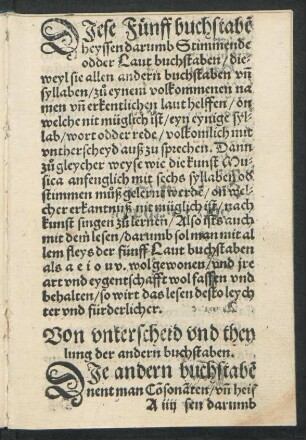 Diese Fünff buchstabē
heyssen darumb Stimmende
odder Laut buchstaben / die-
weyl sie allen andern buchstaben vñ
syllaben / zů eynem volkommenen na
men vñ erkentlichen laut helffen / on
welche nit müglich ist / eyn eynige syl-
lab / wort odder rede / volkomlich mit
vntherscheyd auß zů sprechen. Dann
zů gleycher weyse wie die kunst Mu-
sica anfenglich mit sechs syllaben od
stimmen můß gelernt werdē / on wel-
cher erkantnuß nit müglich ist / nach
kunst singen zů lernen / Also ists auch
mit dem lesen / darumb sol man mit al
lem fleys der fünff Laut buchstaben
als a e i o u v. wol gewonen / vnd jre
art vnd eygentschafft wol fassen vnd
behalten / so wirt das lesen desto leych
ter vnd fürderlicher.
Von vnterscheid vnd they
lung der andern buchstaben.
Die andern buchstabē
nent man Cōsonātēn / vñ heis
A iiij sen darumb